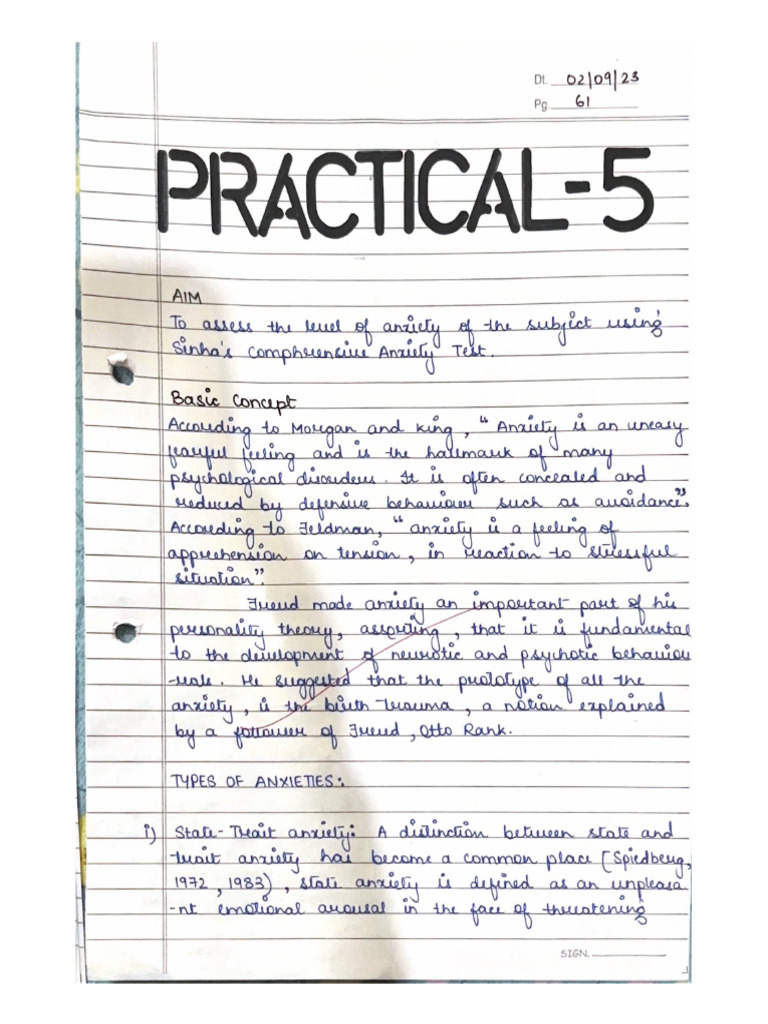 Dt. 02/09/23
Pg 61
PRACTICAL-5
AIM
To assess the level of anxiety of the subject using
Sinha's Comphrensive Anxiety Test.
Basic Concept
According to Morgan and King, "Anxiety is an uneasy
fearful feeling and is the hallmark of many
psychological disorders. It is often concealed and
reduced by defensive behaviour such as avoidance".
According to Feldman, "anxiety is a feeling of
apprehension on tension, in reaction to stressful
situation".
Freud made anxiety an important part of his
personality theory, asserting, that it is fundamental
to the development of neurotic and psychotic behaviou
-rals. He suggested that the prototype of all the
anxiety, is the birth trauma, a notion explained
by a follower of Freud, Otto Rank.
TYPES OF ANXIETIES:
i) State-Trait anxiety: A distinction between state and
trait anxiety has become a common place (Spiedberg,
1972, 1983), state anxiety is defined as an unpleasa
-nt emotional arousal in the face of threatening
SIGN.